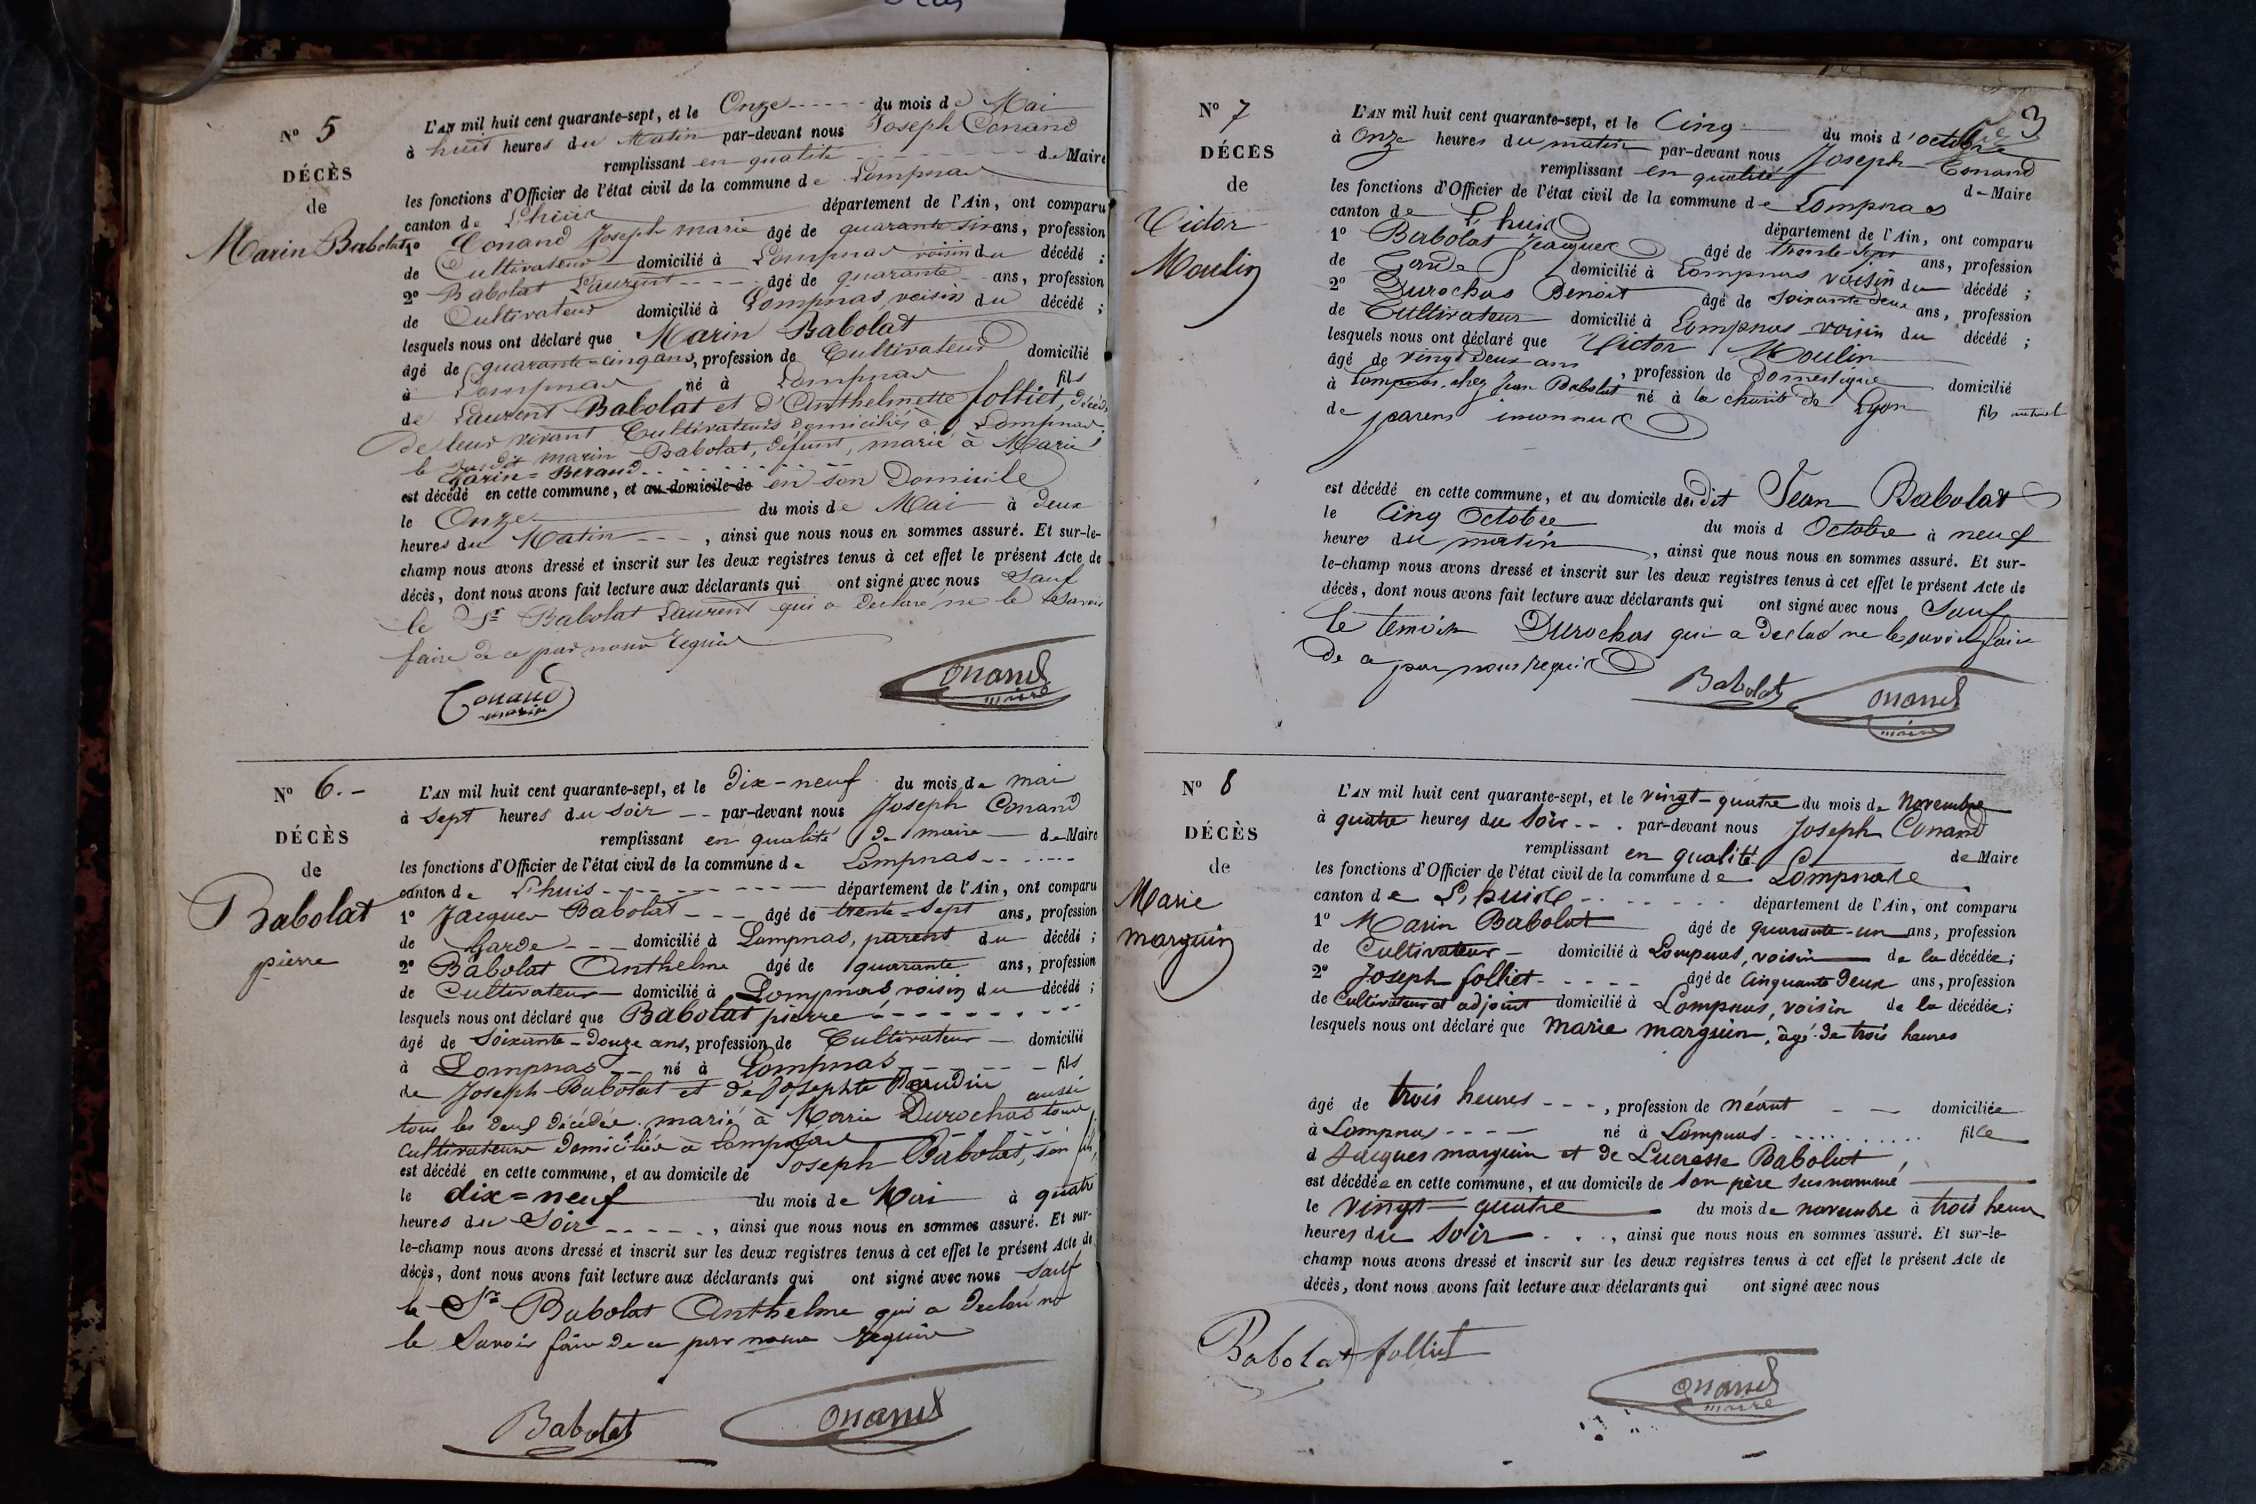 N° 5
DÉCÈS
de
Marin Babolat
L'AN mil huit cent quarante-sept, et le Onze du mois de Mai
à huit heures du Matin par-devant nous Joseph Conand
remplissant en qualité de Maire
les fonctions d'Officier de l'état civil de la commune de Lompnas
canton de Lhuis département de l'Ain, ont comparu
1° Conand Joseph marie âgé de quarante six ans, profession
de Cultivateur domicilié à Lompnas voisin du décédé ;
2° Babolat Laurent âgé de quarante ans, profession
de Cultivateur domicilié à Lompnas, voisin du décédé ;
lesquels nous ont déclaré que Marin Babolat
âgé de quarante-cinq ans, profession de Cultivateur domicilié
à Lompnas né à Lompnas fils
de Laurent Babolat et d'Anthelmette folliet, décédés
de leur vivant Cultivateurs domiciliés à Lompnas ;
le susdit marin Babolat, défunt, marié à Marie
Garin = Beraud
est décédé en cette commune, et au domicile de en son Domicile
le Onze du mois de Mai à deux
heures du Matin, ainsi que nous nous en sommes assuré. Et sur-le-
champ nous avons dressé et inscrit sur les deux registres tenus à cet effet le présent Acte de
décès, dont nous avons fait lecture aux déclarants qui ont signé avec nous Sauf
le Sr Babolat Laurent qui a déclaré ne le savoir
faire de ce par nous requis
Conand
marie
Conand
maire
N° 6.-
DÉCÈS
de
Babolat
pierre
L'AN mil huit cent quarante-sept, et le dix-neuf du mois de mai
à sept heures du soir par-devant nous Joseph Conand
remplissant en qualité de maire de Maire
les fonctions d'Officier de l'état civil de la commune de Lompnas
canton de Lhuis département de l'Ain, ont comparu
1° Jacques Babolat âgé de trente-sept ans, profession
de Garde domicilié à Lompnas, parent du décédé ;
2° Babolat Anthelme âgé de quarante ans, profession
de Cultivateur domicilié à Lompnas, voisin du décédé ;
lesquels nous ont déclaré que Babolat pierre
âgé de Soixante-douze ans, profession de Cultivateur domicilié
à Lompnas né à Lompnas fils
de Joseph Babolat et de Josephte Baudin
tous les deux décédés. marié à Marie Durochas tous aussi
cultivateurs domiciliés à Lompnas
est décédé en cette commune, et au domicile de Joseph Babolat, son fils,
le dix=neuf du mois de Mai à quatre
heures du Soir, ainsi que nous nous en sommes assuré. Et sur-
le-champ nous avons dressé et inscrit sur les deux registres tenus à cet effet le présent Acte de
décès, dont nous avons fait lecture aux déclarants qui ont signé avec nous Sauf
le Sr Babolat Anthelme qui a déclaré ne
le Savoir faire de ce par nous requis
Babolat
Conand
3
N° 7
DÉCÈS
de
Victor
Moulin
L'AN mil huit cent quarante-sept, et le Cinq du mois d'octobre
à Onze heures du matin par-devant nous Joseph Conand
remplissant en qualité de Maire
les fonctions d'Officier de l'état civil de la commune de Lompnas
canton de L'huis département de l'Ain, ont comparu
1° Babolat Jacques âgé de trente-sept ans, profession
de Garde domicilié à Lompnas voisin du décédé ;
2° Durochas Benoit âgé de soixante deux ans, profession
de Cultivateur domicilié à Lompnas voisin du décédé ;
lesquels nous ont déclaré que Victor Moulin
âgé de vingt deux ans, profession de Domestique domicilié
à Lompnas, chez Jean Babolat né à la charité de Lyon fils naturel
de parens inconnus
est décédé en cette commune, et au domicile de dit Jean Babolat
le Cinq Octobre du mois d Octobre à neuf
heures du matin, ainsi que nous nous en sommes assuré. Et sur-
le-champ nous avons dressé et inscrit sur les deux registres tenus à cet effet le présent Acte de
décès, dont nous avons fait lecture aux déclarants qui ont signé avec nous Sauf
le temoin Durochas qui a déclaré ne le savoir faire
de ce par nous requis
Babolat
Conand
maire
N° 8
DÉCÈS
de
Marie
marguin
L'AN mil huit cent quarante-sept, et le vingt-quatre du mois de Novembre
à quatre heures du Soir par-devant nous Joseph Conand
remplissant en qualité de Maire
les fonctions d'Officier de l'état civil de la commune de Lompnas
canton de L'huis département de l'Ain, ont comparu
1° Marin Babolat âgé de quarante-un ans, profession
de Cultivateur domicilié à Lompnas, voisin de la décédée ;
2° Joseph folliet âgé de Cinquante deux ans, profession
de Cultivateur et adjoint domicilié à Lompnas, voisin de la décédée ;
lesquels nous ont déclaré que Marie marguin, âgé de trois heures
âgé de trois heures, profession de néant domiciliée
à Lompnas né à Lompnas fille
d Jacques marguin et de Lucresse Babolat,
est décédée en cette commune, et au domicile de son père susnommé
le vingt-quatre du mois de novembre à trois heures
heures du Soir, ainsi que nous nous en sommes assuré. Et sur-le-
champ nous avons dressé et inscrit sur les deux registres tenus à cet effet le présent Acte de
décès, dont nous avons fait lecture aux déclarants qui ont signé avec nous
Babolat folliet
Conand
maire